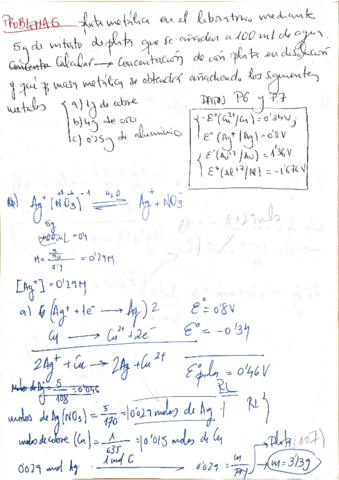 PROBLEMA 6 plata metálica en el laboratorio mediante
5g de nitrato de plata que se añaden a 100 ml de agua.
Calcular → Concentración de ión plata en disolución
y qué masa metálica se obtendrá añadiendo los siguientes
metales
a) 1g de cobre
b) 4g de oro
c) 0'25g de aluminio
DATOS P6 y P7
E°(Cu²⁺/Cu) = 0'34V;
E°(Ag⁺/Ag) = 0'8V
E°(Au⁺³/Au) = 1'36V
E°(Al⁺³/Al) = -1'676V
Ag⁺(NO₃)⁻¹ H₂O Ag⁺ + NO₃
5g
M = = 0'29M
0'1
[Ag⁺] = 0'29M
a) (Ag⁺ + 1e⁻ → Ag) 2 E° = 0'8V
Cu → Cu²⁺ + 2e⁻ E° = -0'34
2Ag⁺ + Cu → 2Ag + Cu²⁺ E° pila = 0'46V
moles de Ag = 5/108 = 0'046
RL
moles de Ag(NO₃) = 5/170 = 0'029 moles de Ag
moles de cobre (Cu) = 1/63'5 = 0'015 moles de Cu
Plata (107)
0'029 mol Ag 0'029 = m = 3'13g